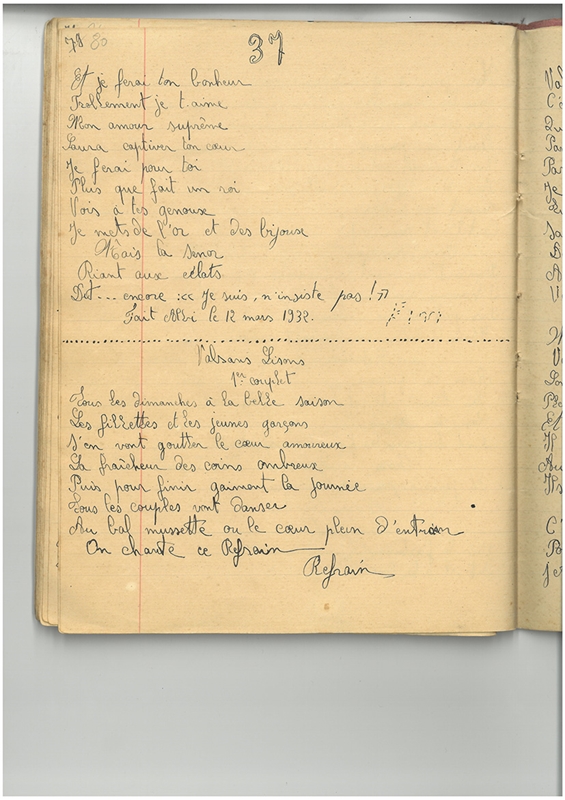 78 80
37
Et je ferai ton bonheur
Follement je t'aime
Mon amour suprême
Saura captiver ton cœur
Je ferai pour toi
Plus que fait un roi
Vois à tes genoux
Je mets de l'or et des bijoux
Mais la senor
Riant aux éclats
Dit... encore : << Je suis, n'insiste pas ! >>
Fait le 12 mars 1932.
Valsons Lisons
1er couplet
Tous les dimanches à la belle saison
Les fillettes et les jeunes garçons
S'en vont goutter le cœur amoureux
La fraîcheur des coins ombreux
Puis pour finir gaiment la journée
Tous les couples vont danser
Au bal mussette ou le cœur plein d'entrain
On chante ce Refrain
Refrain